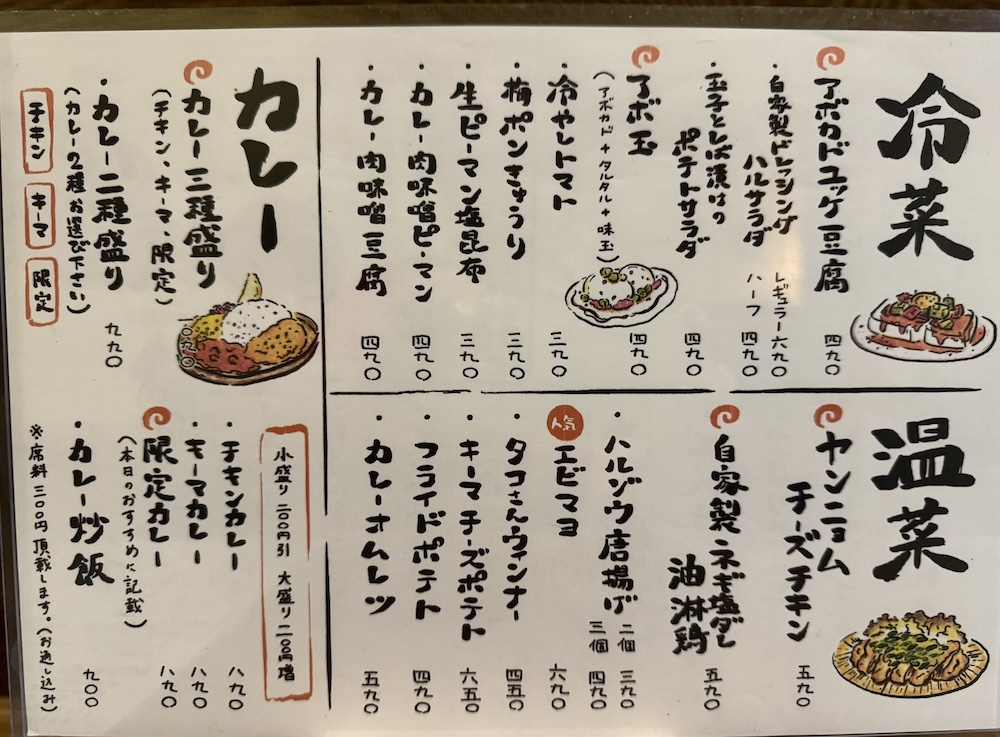 冷菜
アボカドユッケ豆腐 四九〇
・自家製ドレッシング
ハルサラダ
レギュラー 六九〇
ハーフ 四九〇
・玉子としば漬けの
ポテトサラダ 四九〇
アボ玉 四九〇
(アボカド+タルタル+味玉)
・冷やしトマト 三九〇
・梅ポンきゅうり 三九〇
・生ピーマン塩昆布 三九〇
・カレー肉味噌ピーマン 四九〇
・カレー肉味噌豆腐 四九〇
温菜
ヤンニョム
チーズチキン 五九〇
自家製ネギ塩ダレ
油淋鶏 五九〇
・ハルゾウ唐揚げ
二個 三九〇
三個 四九〇
人気
エビマヨ 六九〇
・タコさんウィンナー 四五〇
・キーマチーズポテト 六五〇
・フライドポテト 四九〇
・カレーオムレツ 五九〇
カレー
カレー三種盛り 一〇九〇
(チキン、キーマ、限定)
・カレー二種盛り 九九〇
(カレーの2種お選び下さい)
チキン
キーマ
限定
小盛り 二〇〇円引 大盛り 二〇〇円増
・チキンカレー 八九〇
・キーマカレー 八九〇
限定カレー 八九〇
(本日のおすすめに記載)
・カレー炒飯 九〇〇
※席料 三〇〇円 頂戴します。(お通し込み)